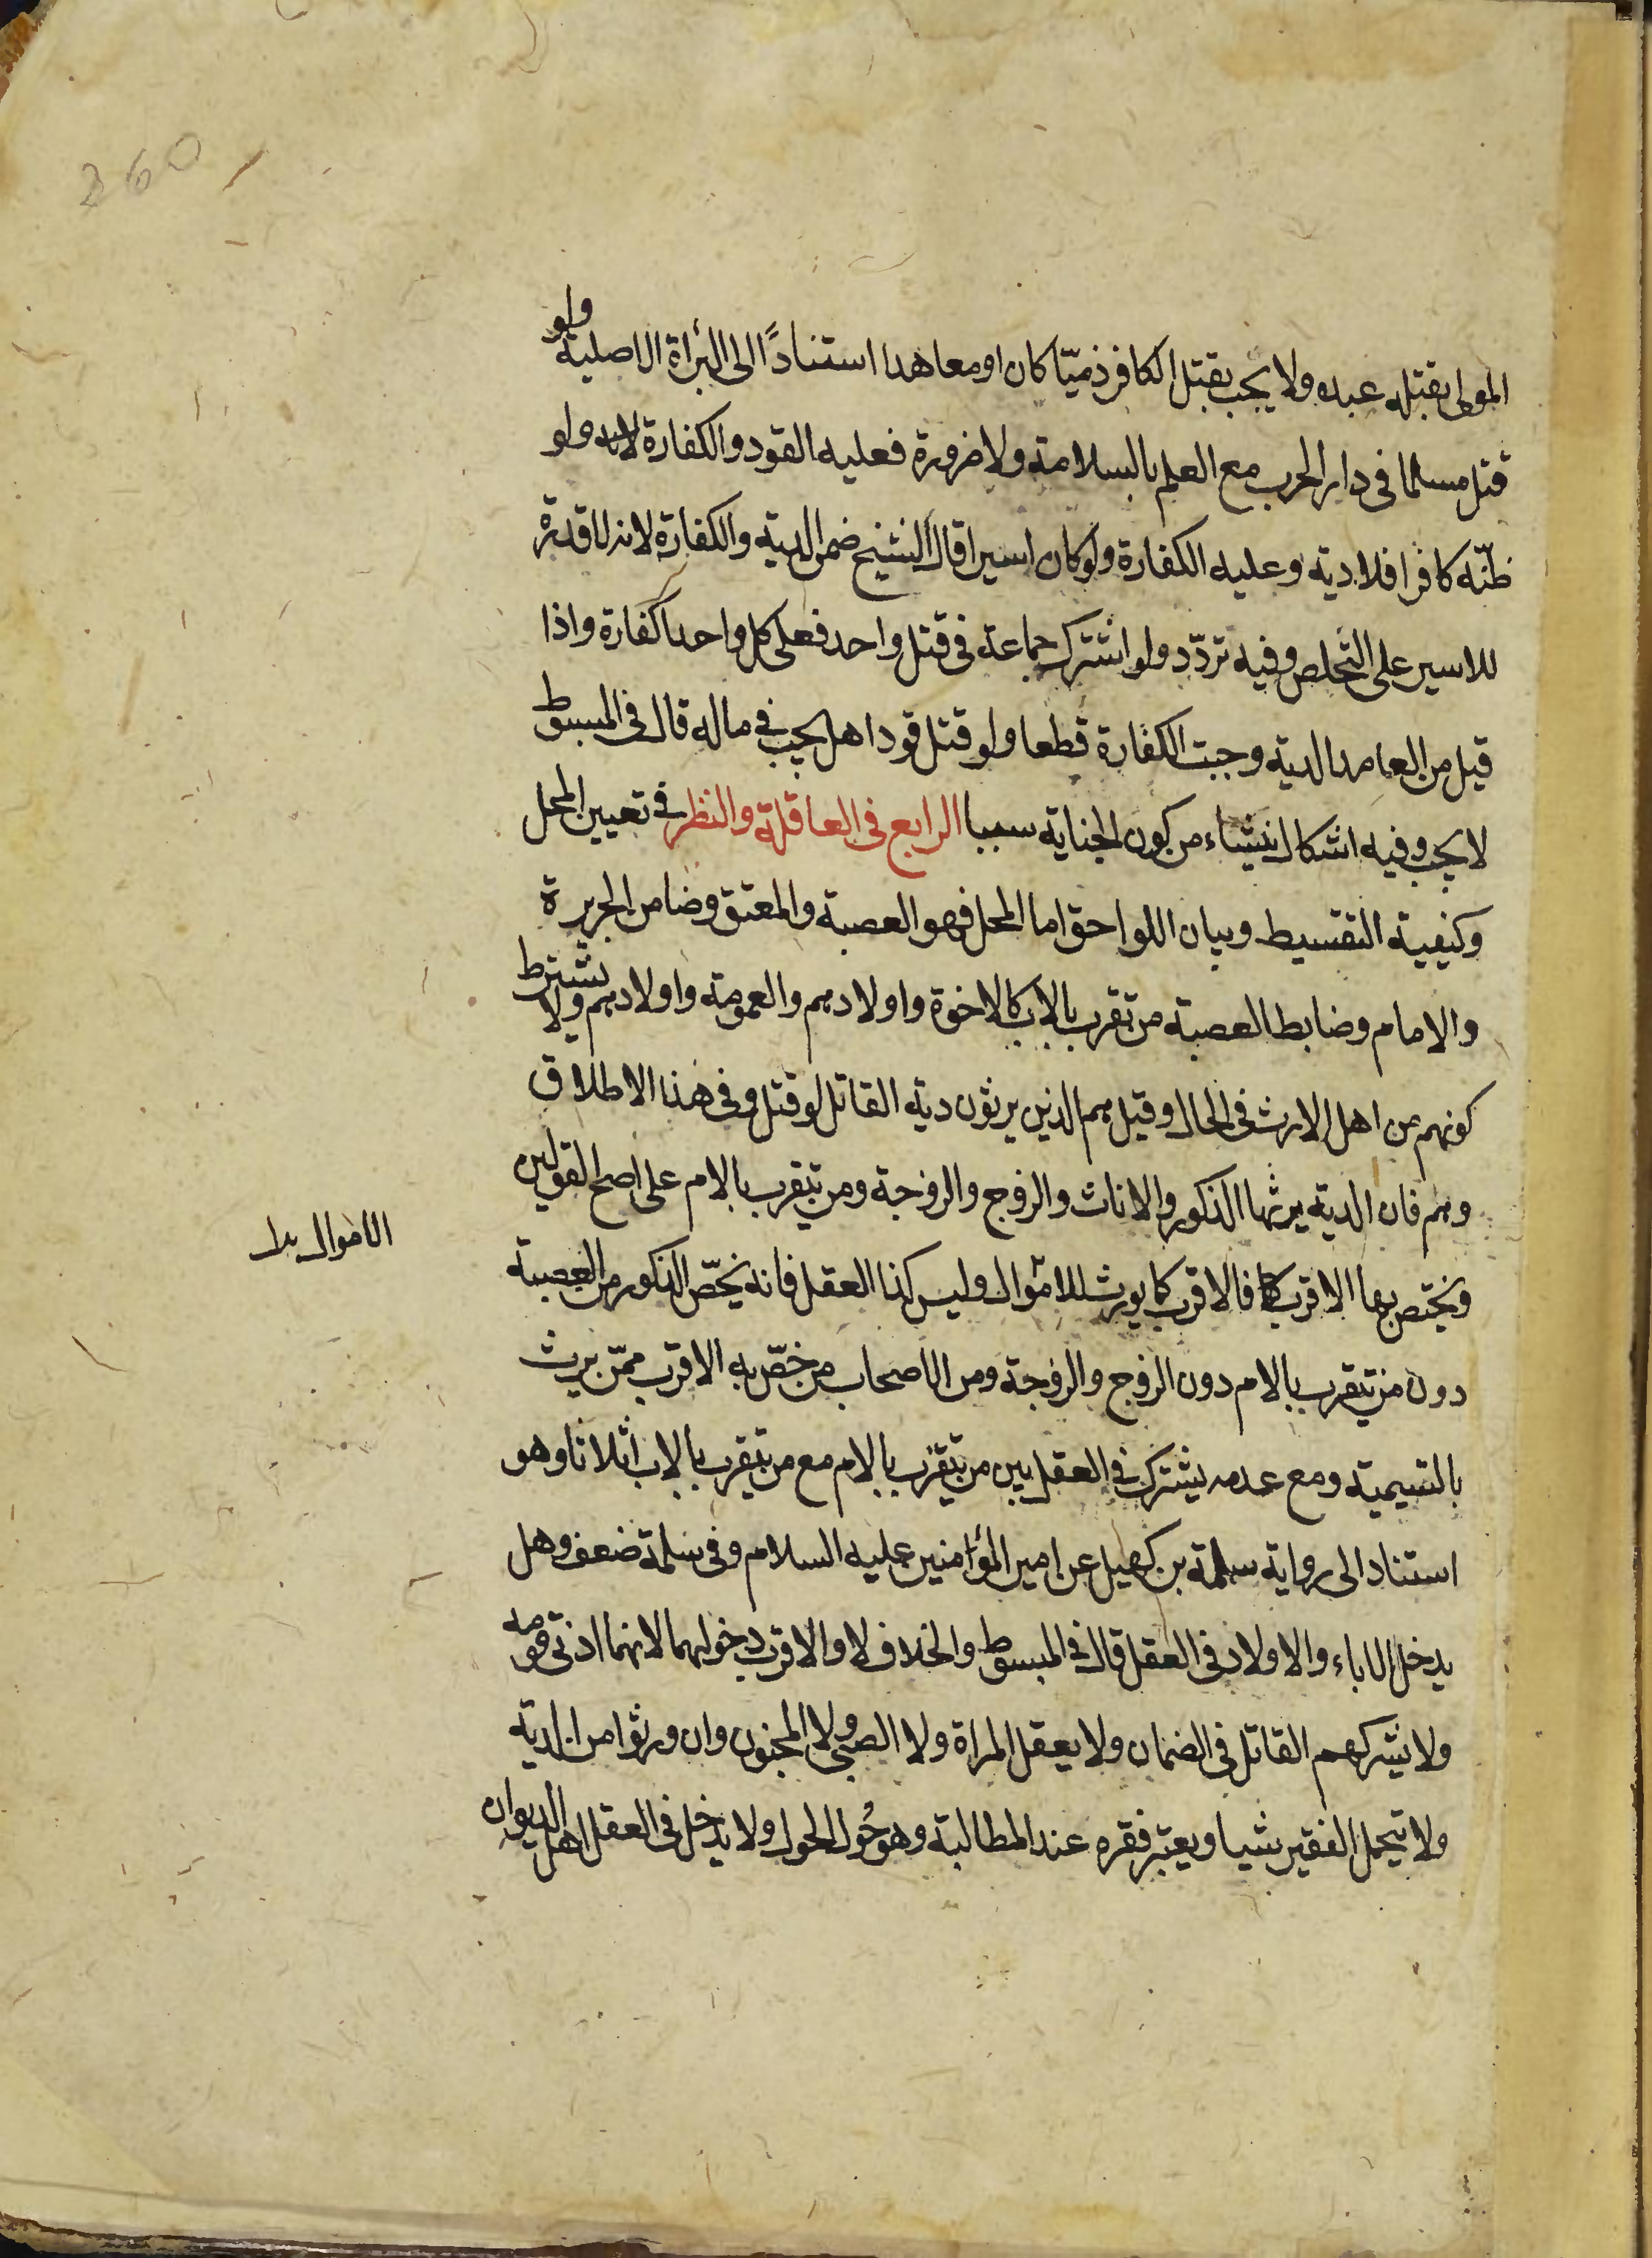 360
المولى بقتله عبده ولا يجب بقتل الكافر ذميّا كان او معاهدا استناداً الى البرأة الاصلية ولو
قتل مسلما فى دار الحرب مع العلم بالسلامة ولا ضرورة فعليه القود والكفارة ولو
ظنّه كافرا فلا دية وعليه الكفارة ولو كان اسيرا قال الشيخ ضمن الدية والكفارة لانه لا قدرة
للاسير على التخلص وفيه تردّد ولو اشترك جماعة فى قتل واحد فعلى كل واحد كفارة واذا
قبل من العامد الدية وجبت الكفارة قطعا ولو قتل قودا هل يجب فى ماله قال فى المبسوط
لا يجب وفيه اشكال ينشاء من كون الجناية سببا الرابع فى العاقلة والنظر فى تعيين المحل
وكيفية التقسيط وبيان اللواحق اما المحل فهو العصبة والمعتق وضامن الجريرة
والامام وضابط العصبة من تقرب بالاب كالاخوة واولادهم والعمومة واولادهم ولا يشترط
كونهم من اهل الارث فى الحال وقيل هم الذين يرثون دية القاتل لو قتل وفى هذا الاطلاق
وهم فان الدية يرثها الذكور والاناث والزوج والزوجة ومن يتقرب بالام على اصح القولين
ويختص بها الاقرب فالاقرب كما يورث الاموال وليس كذا العقل فانه يختصّ الذكور من العصبة
الاموال بدل
دون من يتقرب بالام دون الزوج والزوجة ومن الاصحاب من خصّ به الاقرب ممّن يرث
بالتسمية ومع عدمه يشترك فى العقل بين من يتقرب بالام مع من يتقرب بالاب اثلاثا وهو
استناد الى رواية سلمة بن كهيل عن امير المؤمنين عليه السلام وفى سلمة ضعف وهل
يدخل الاباء والاولاد فى العقل قال فى المبسوط والخلاف لا والاقرب دخولهما لانهما ادنى قومه
ولا يشركهم القاتل فى الضمان ولا يعقل المراة ولا الصبى ولا المجنون وان ورثوا من الدية
ولا يتحمل الفقير شيا ويعتبر فقره عند المطالبة وهو حُول الحول ولا يدخل فى العقل اهل الديوان